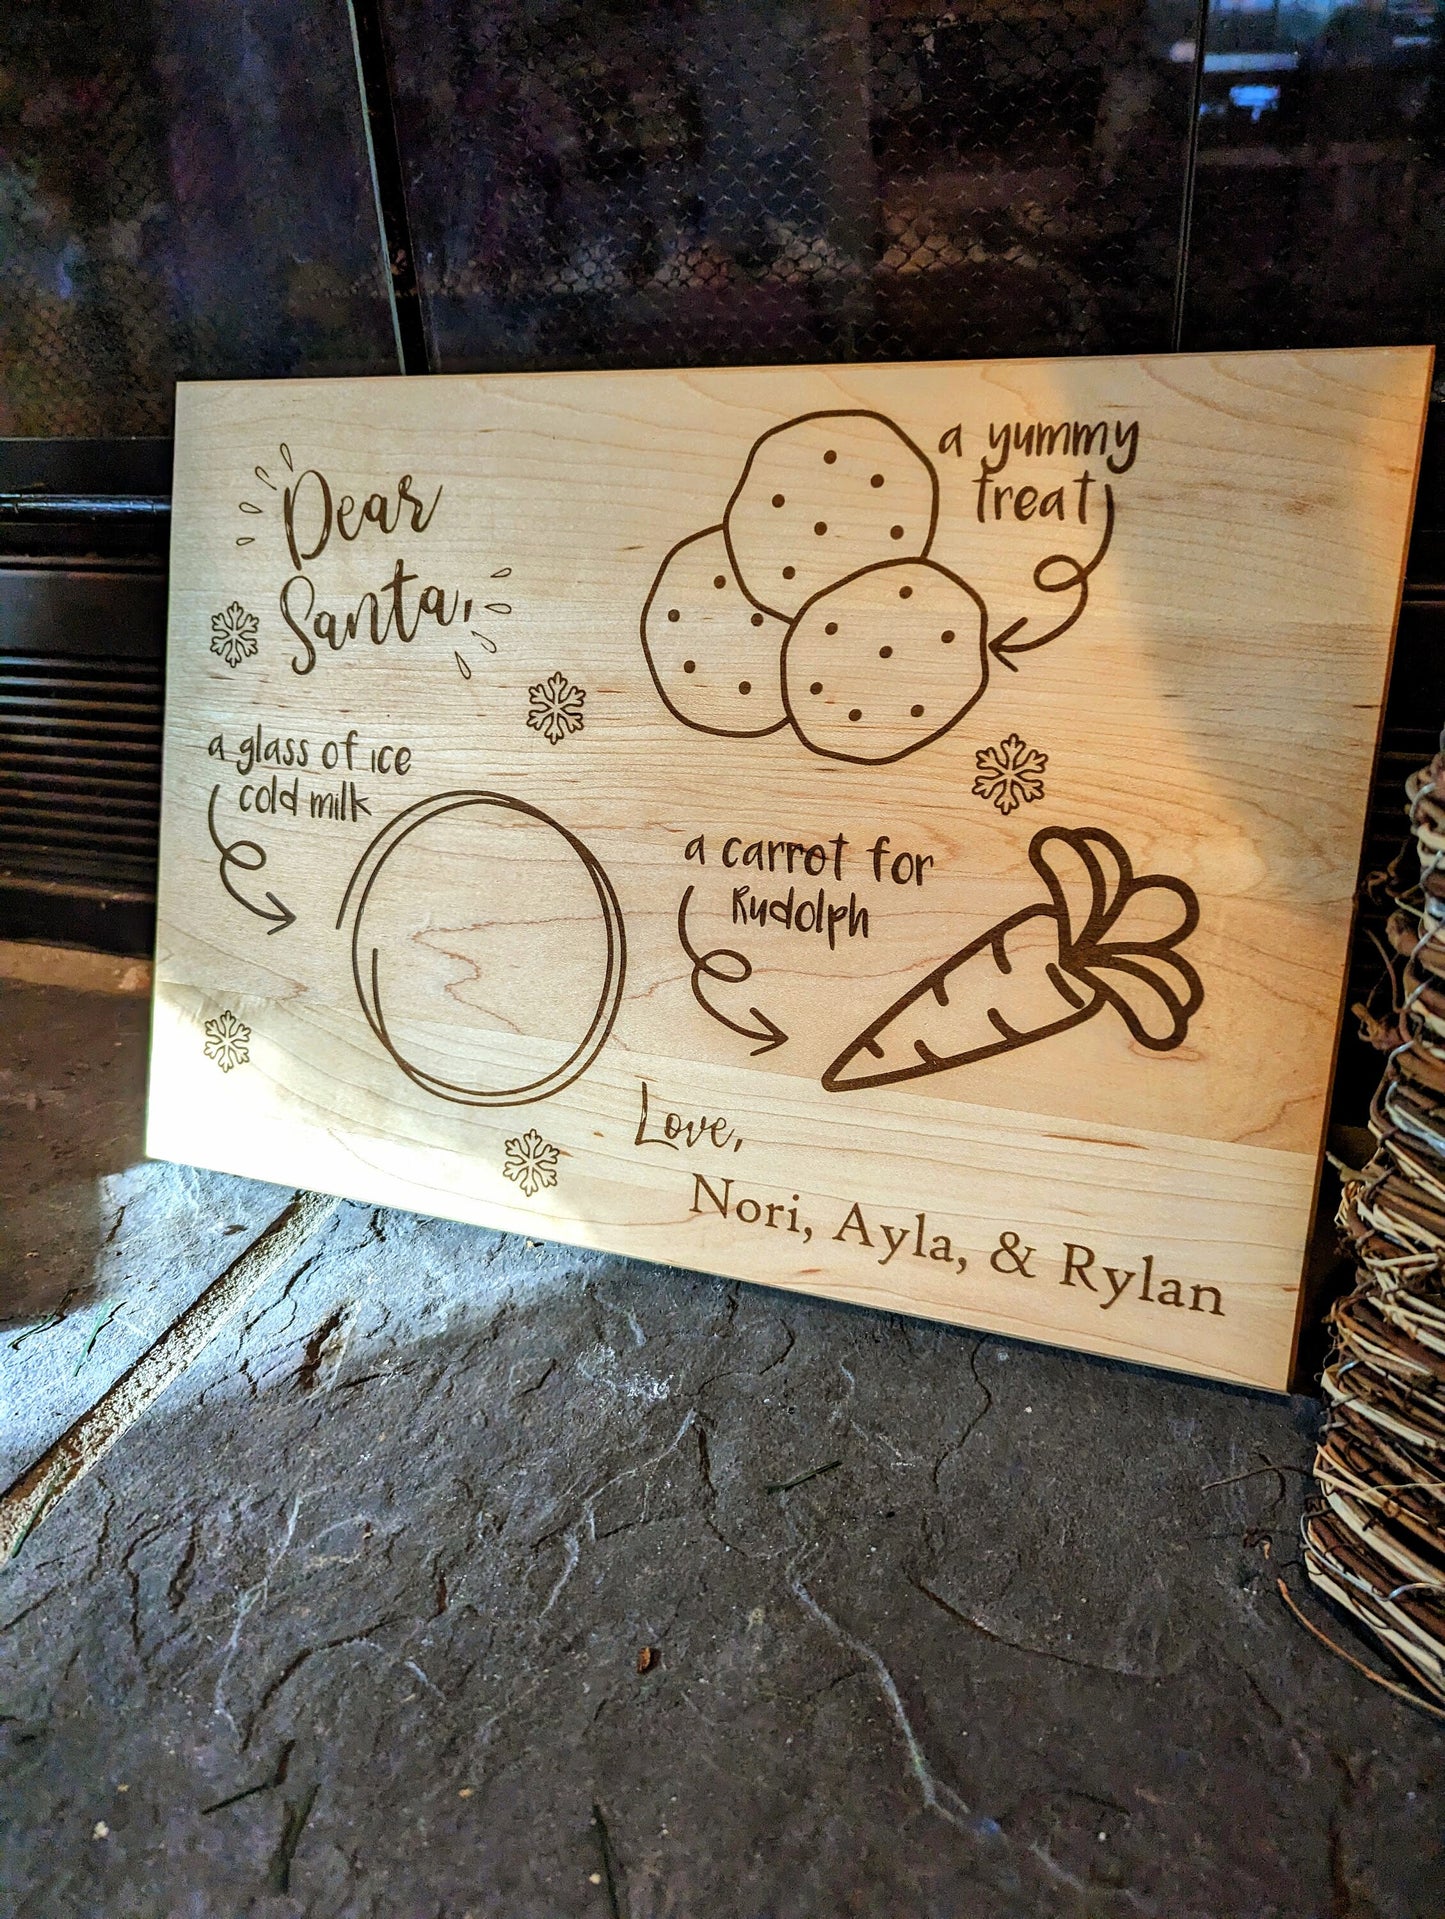 Dear
Santa,
a yummy
treat
a glass of ice
cold milk
a carrot for
Rudolph
Love,
Nori, Ayla, & Rylan